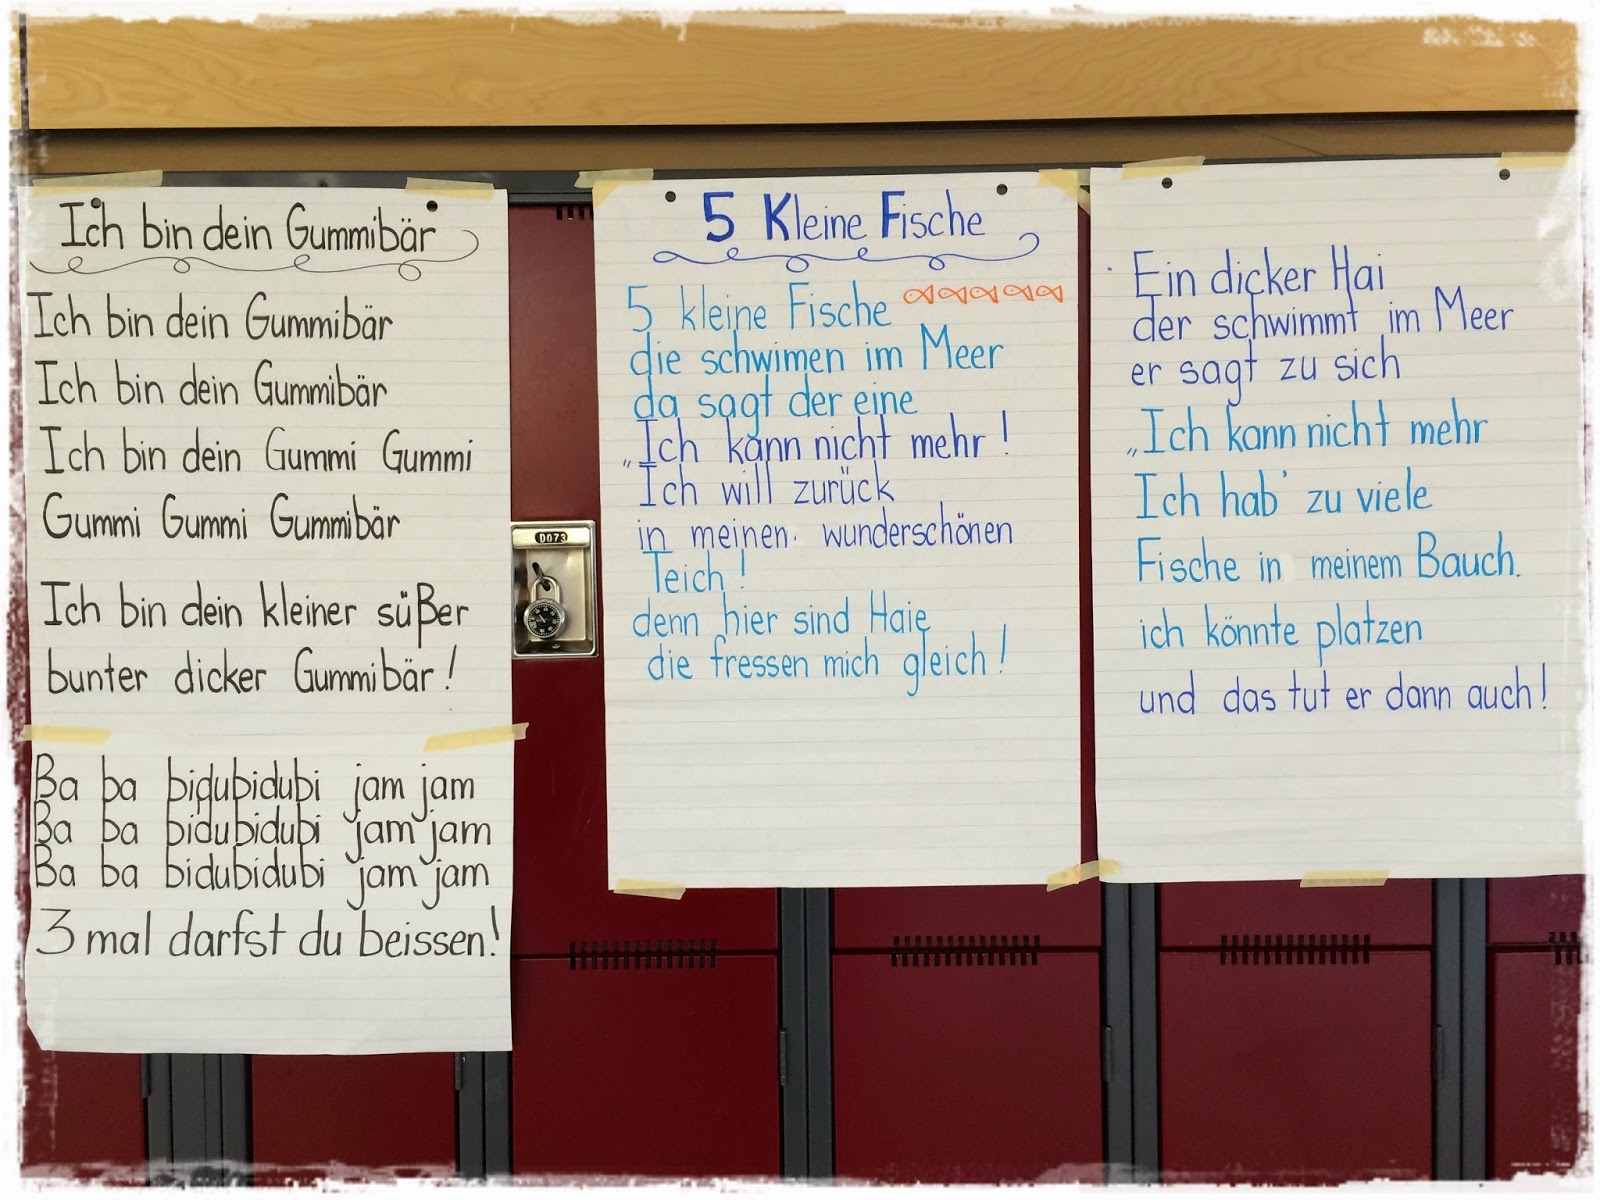 Ich bin dein Gummibär
Ich bin dein Gummibär
Ich bin dein Gummibär
Ich bin dein Gummi Gummi
Gummi Gummi Gummibär
Ich bin dein kleiner süßer
bunter dicker Gummibär!
Ba ba bidubidubi jam jam
Ba ba bidubidubi jam jam
Ba ba bidubidubi jam jam
3 mal darfst du beissen!
D073
5 Kleine Fische
5 kleine Fische
die schwimen im Meer
da sagt der eine
„Ich kann nicht mehr!
Ich will zurück
in meinen wunderschönen
Teich!
denn hier sind Haie
die fressen mich gleich!
Ein dicker Hai
der schwimmt im Meer
er sagt zu sich
„Ich kann nicht mehr
Ich hab' zu viele
Fische in meinem Bauch.
ich könnte platzen
und das tut er dann auch!